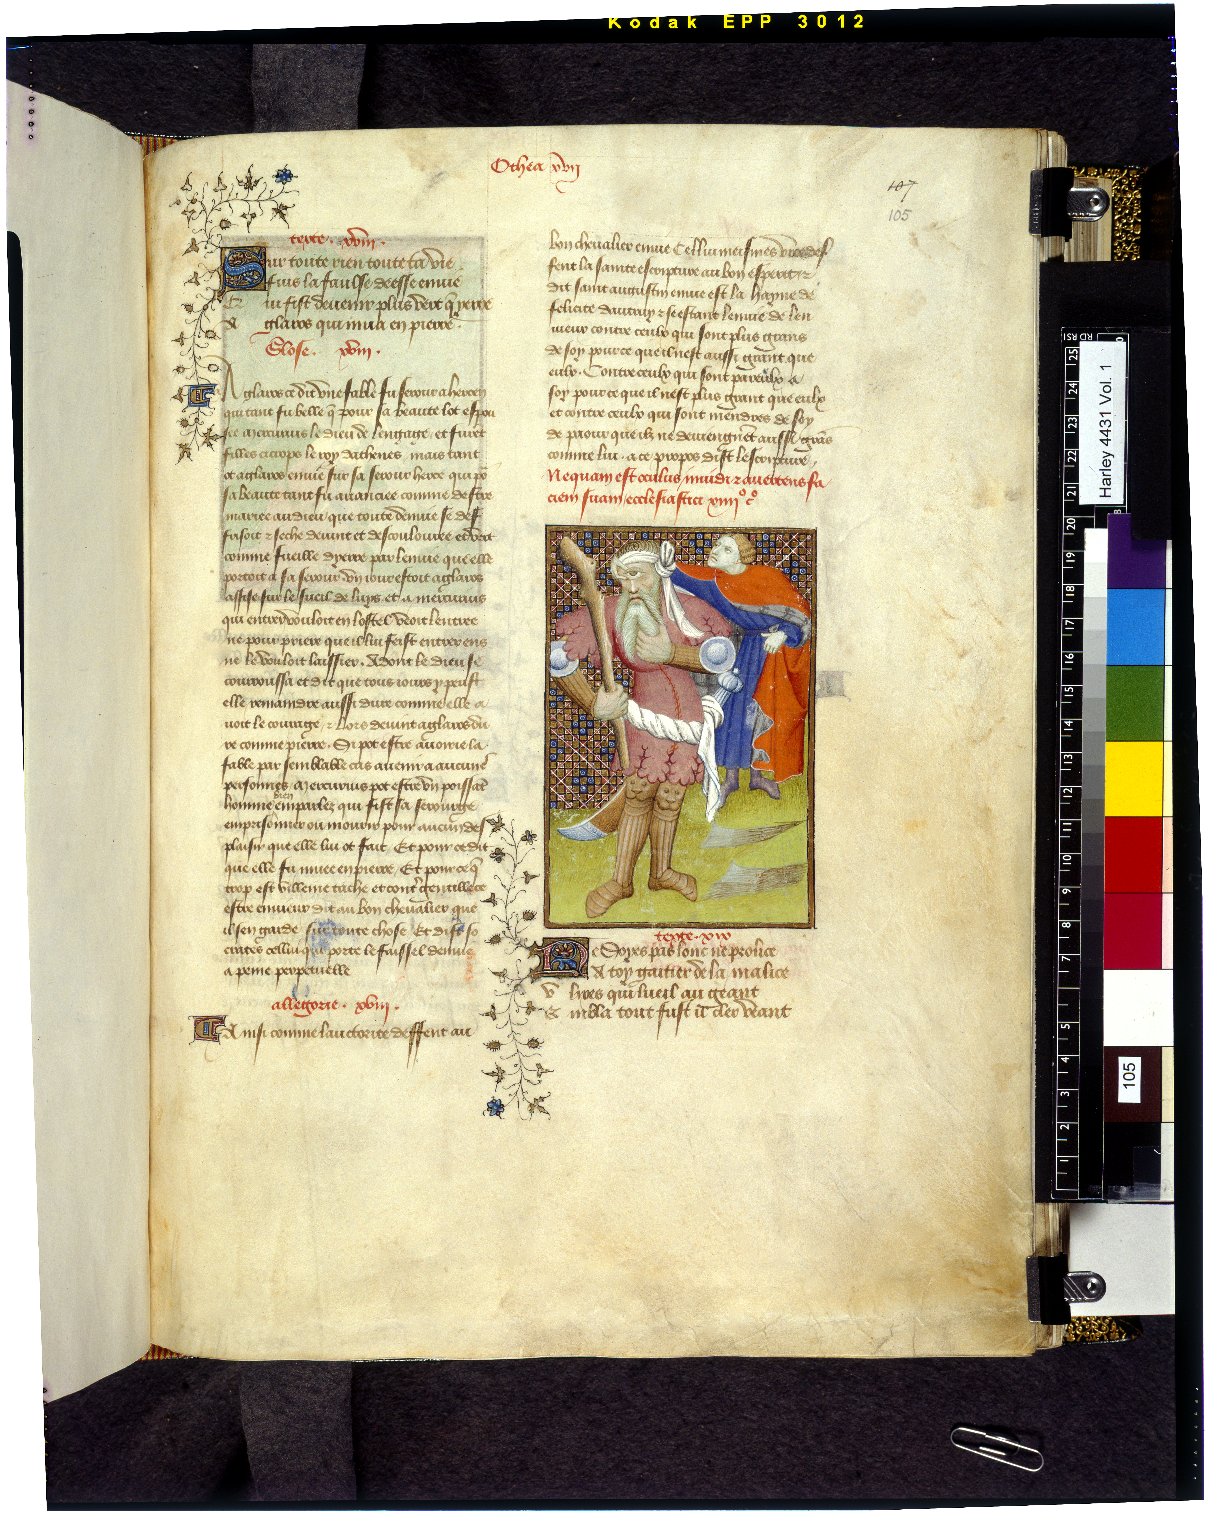 Kodak EPP 3012
Othea xviij
107
105
texte . xviij .
Sur toute rien toute ta vie
fuis la faulse deesse envie
Et
lui fist devenir plus vert q̃ yerre
A
glaros qui mua en pierre .
Glose . xviij .
Aglaros ce dit une fable fu serour a herce
qui tant fu belle q̃ pour sa beaute lot espou
see mercurius le dieu de lengage et furet
filles cicrops le roy dathenes mais tant
ot aglaros envie sur sa serour herce qui po
sa beaute tant fu avanciee comme destre
mariee au dieu que toute denvie se des
fisoit et seche devint et descoulouree et vert
comme fueille dyerre par lenvie que elle
portoit a sa serour un jour estoit aglaros
assise sur le sueil de luys et a mercurius
qui entrer vouloit en lostel veoit lentree
ne pour priere que il lui feist entrer ens
ne le vouloit laissier . Adont le dieu se
courroussa et dit que tous jours y peust
elle remaindre aussi dure comme elle a
voit le courage , et lors devint aglaros du
re comme pierre . Si pot estre autorie la
fable par semblable cas avenir a aucuñ
personnes . mercurius pot estre un poissãt
homme bien emparlez qui fist sa serourge
emprisonner ou mourir pour aucun des
plaisir que elle lui ot fait . Et pour ce dit
que elle fu muee en pierre . Et pour ce q̃
trop est villeine tache et cont̃ gentillece
estre envieux dit au bon chevalier que
il sen garde sur toute chose Et dist so
crates cellui qui porte le faissel denvie
a peine perpetuelle
allegorie . xviij .
Ainsi comme lauctorite deffent au
bon chevalier envie Cellui meismes vice def
fent la sainte escripture au bon esperit et
dit saint augustin envie est la hayne de
felicite dautruy et sestant lenvie de len
vieux contre ceulx qui sont plus grans
de soy pource que il nest aussi grant que
eulx . Contre ceulx qui sont pareulx a
soy pource que il nest plus grant que eulx
et contre ceulx qui sont mendres de soy
de paour que ilz ne deviengnent aussi grãs
comme lui . a ce propos dist lescripture ,
Nequam est oculus invidi et avertens fa
ciem suam ecclesiastici xiiijº cº
texte . xix
Ne soyes pas lonc ne prolice
A toy gaitier de la malice
V lixes qui lueil au geant
E mbla tout fust il cler veant
Harley 4431 Vol. 1
105
25
24
23
22
21
20
19
18
17
16
15
14
13
12
11
10
9
8
7
5
4
3
2
1